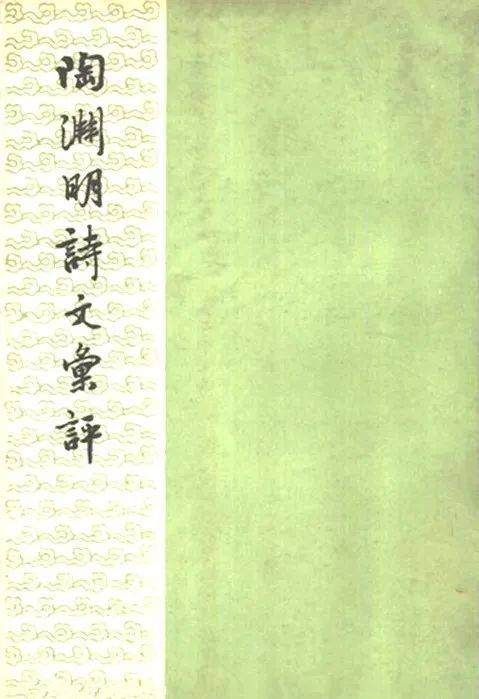 陶淵明詩文彙評